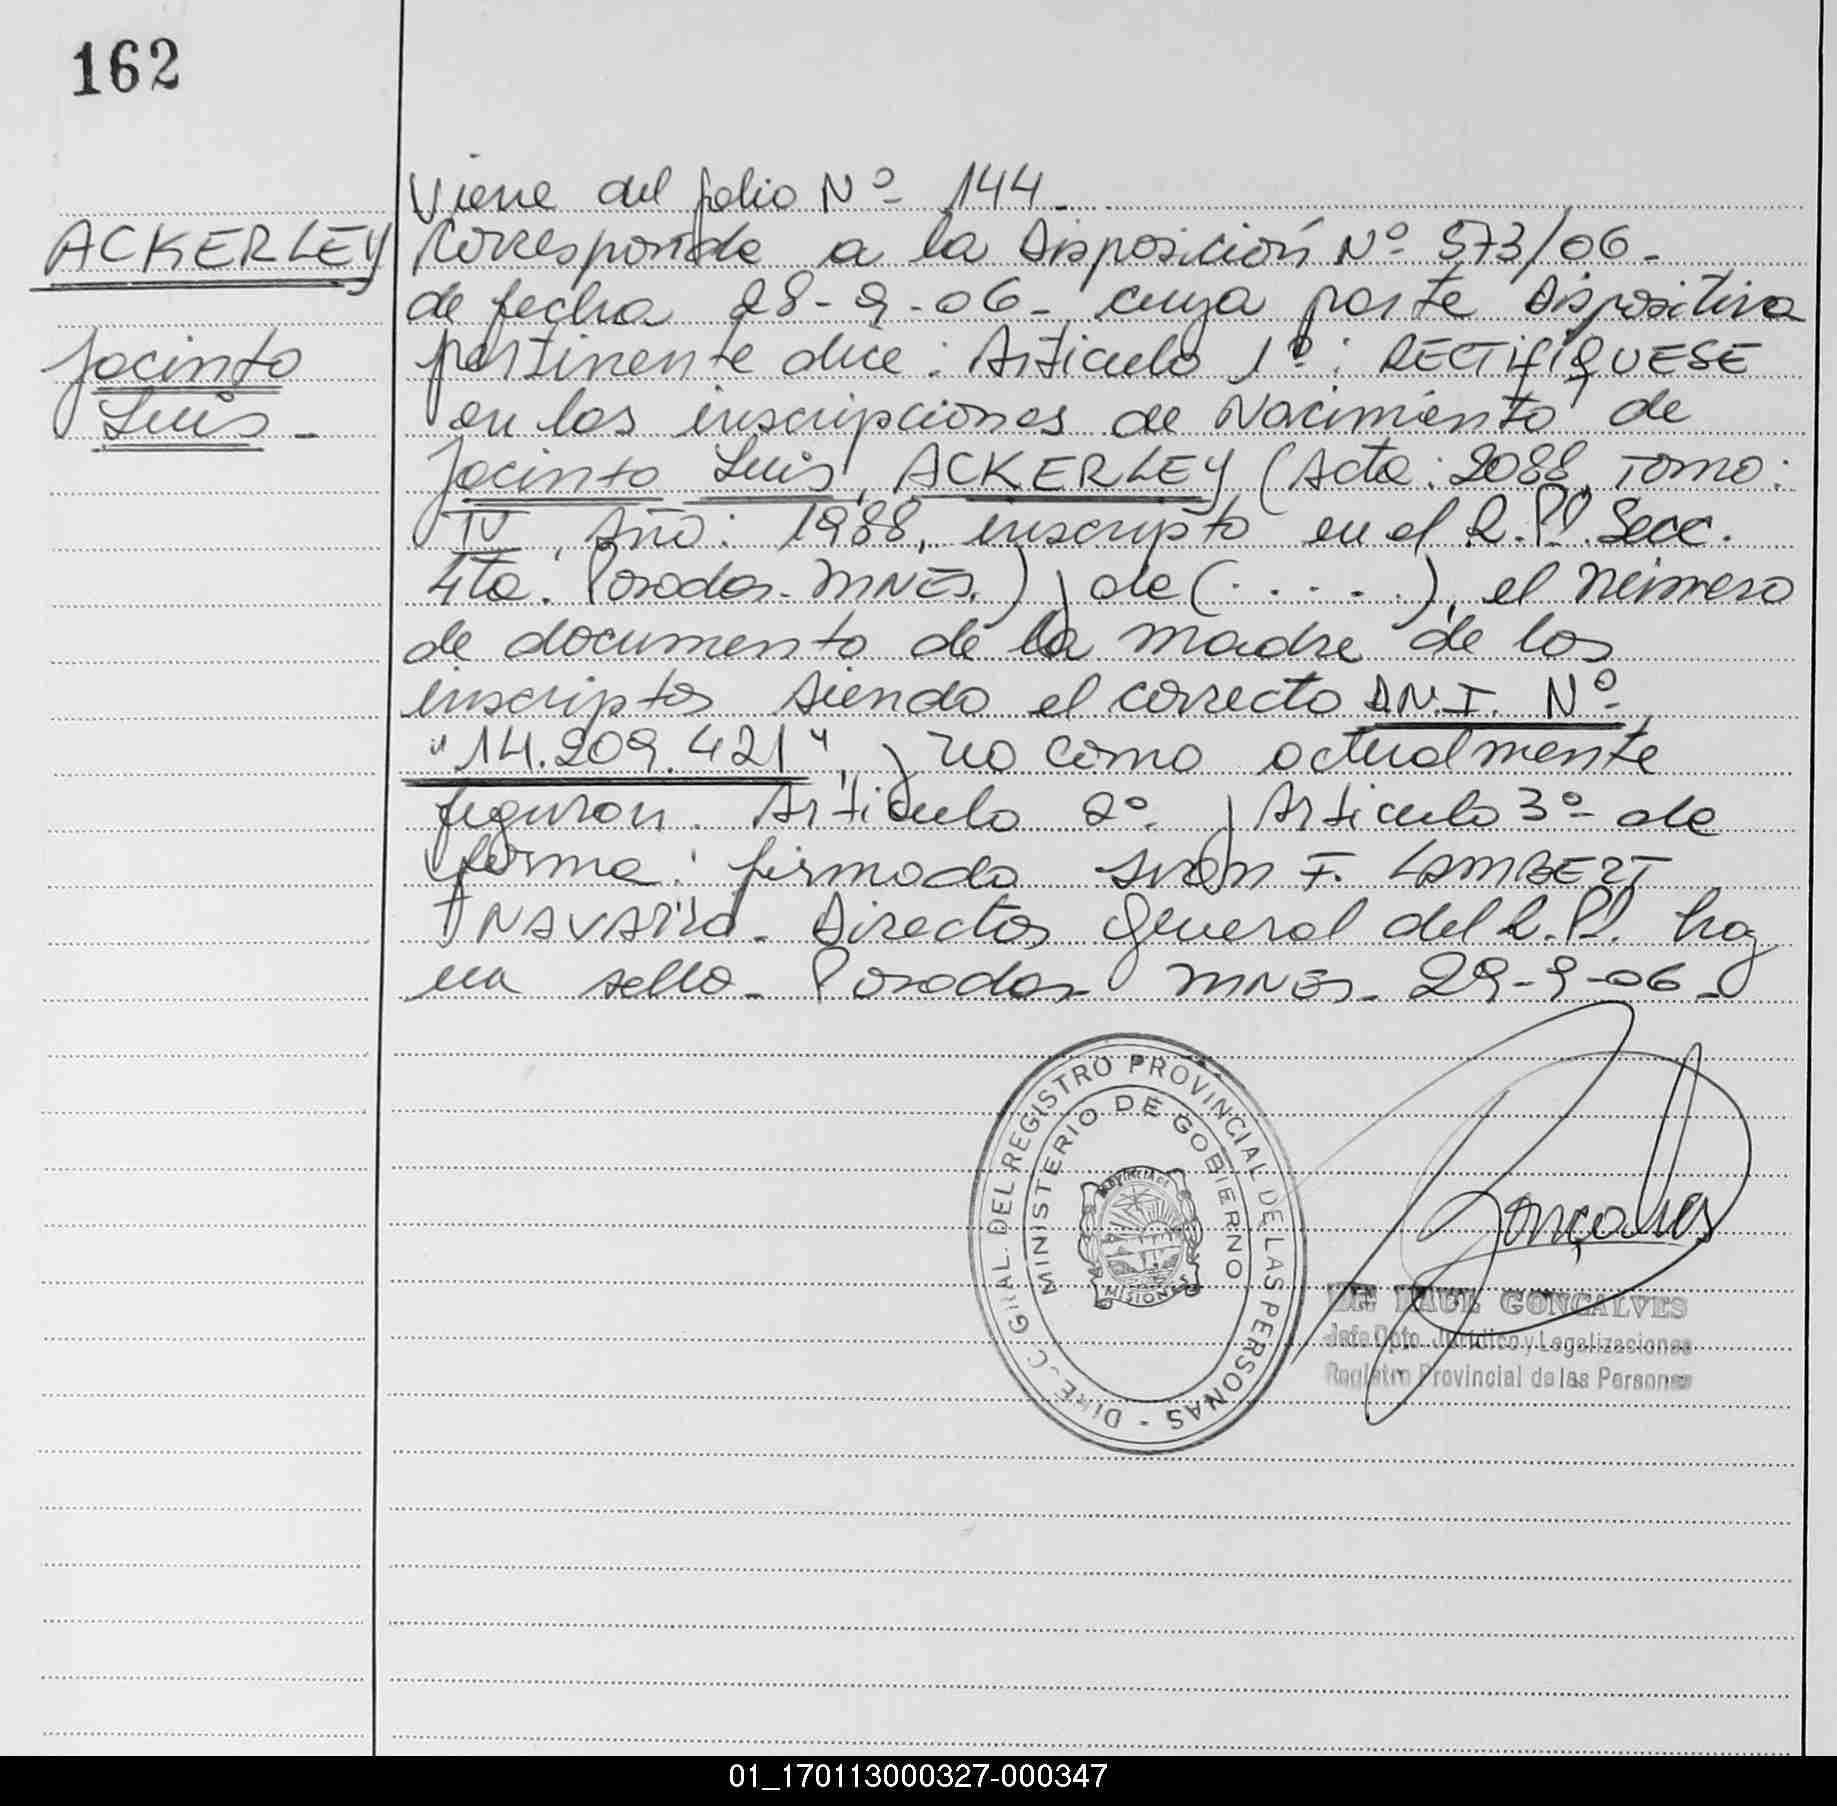 162
Viene del folio Nº 144_
ACKERLEY
Jacinto
Luis_
Corresponde a la Disposición Nº 573/06_
de fecha 28-9-06_ cuya parte Dispositiva
pertinente dice: Artículo 1º: RECTIFIQUESE
en las inscripciones de Nacimiento de
Jacinto Luis, ACKERLEY (Acta: 2088, Tomo:
IV, Año: 1988, inscripto en el R.P.P. Secc.
4ta. Posadas-MNES.) y de (.....), el número
de documento de la madre de los
inscriptos siendo el correcto D.N.I. Nº
"14.209.421", y no como actualmente
figuran. Artículo 2º y Artículo 3º de
forma: firmado Iván F. LAMBERT
NAVARRO_ Director General del R.P.P. hay
un sello_ Posadas MNES_ 29-9-06_
DIRECC GRAL. DEL REGISTRO PROVINCIAL DE LAS PERSONAS -
MINISTERIO DE GOBIERNO
PROVINCIA DE
MISIONES
Gonçalves
DR RAUL GONCALVES
Jefe Dpto. Jurídico y Legalizaciones
Registro Provincial de las Personas
01_170113000327-000347